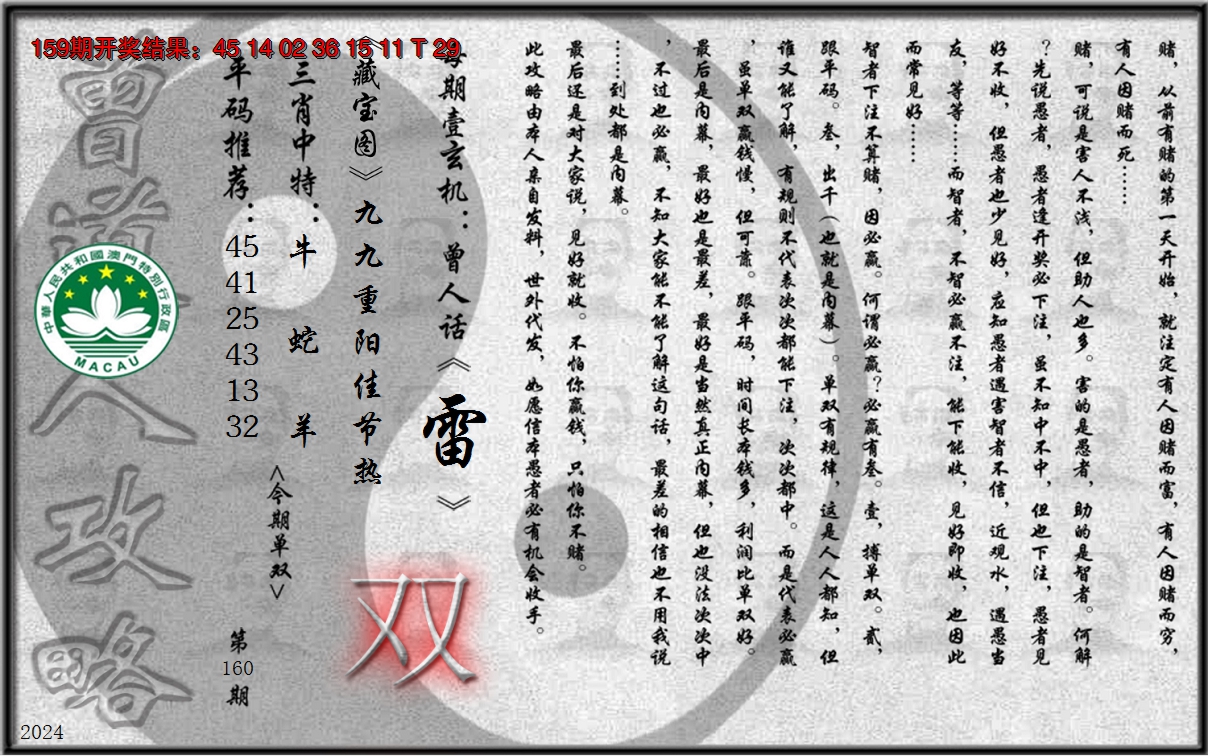 159期开奖结果：45 14 02 36 15 11 T 29
赌，从前有赌的第一天开始，就注定有人因赌而富，有人因赌而穷，
有人因赌而死……
赌，可说是害人不浅，但助人也多。害的是愚者，助的是智者。何解
？先说愚者，愚者逢开奖必下注，虽不知中不中，但也下注，愚者见
好不收，但愚者也少见好，应知愚者遇害智者不信，近观水，遇愚当
友，等等……而智者，不智必赢不注，能下能收，见好即收，也因此
而常见好……
智者下注不算赌，因必赢。何谓必赢？必赢有叁。壹，搏单双。贰，
跟平码。叁，出千（也就是内幕）。单双有规律，这是人人都知，但
谁又能了解，有规则不代表次次都能下注，次次都中。而是代表必赢
，虽单双赢钱慢，但可靠。跟平码，时间长本钱多，利润比单双好。
最后是内幕，最好也是最差，最好是当然真正内幕，但也没法次次中
，不过也必赢，不知大家能不能了解这句话，最差的相信也不用我说
……到处都是内幕。
最后还是对大家说，见好就收。不怕你赢钱，只怕你不赌。
此攻略由本人亲自发料，世外代发，如愿信本愚者必有机会收手。
每期壹玄机：曾人话《雷》
《藏宝图》九九重阳佳节热
双
三肖中特：牛 蛇 羊
<今期单双>
平码推荐：45 41 25 43 13 32
第160期
曾道人攻略
中華人民共和國澳門特別行政區
MACAU
2024